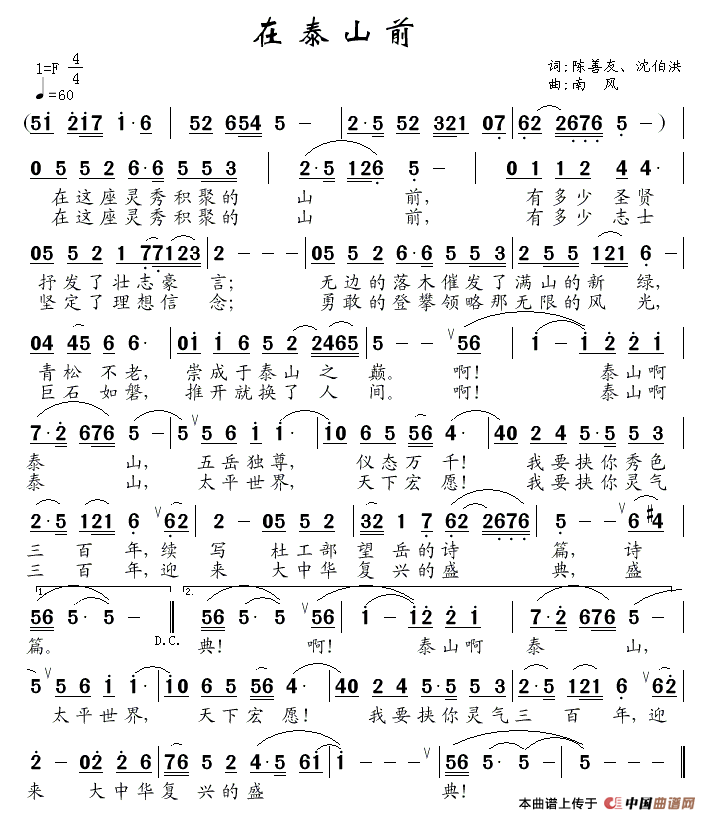 在泰山前
1=F 4/4
词:陈善友、沈伯洪
♩=60
曲:南 风
(51 217 1·6 | 52 654 5 - | 2·5 52 321 07 | 62 2676 5 - )
0 5 5 2 6·6 5 5 3 | 2·5 126 5 - | 0 1 1 2 4 4·
在这座灵秀积聚的 山 前, 有多少圣贤
在这座灵秀积聚的 山 前, 有多少志士
05 5 2 1 77123 | 2 - - - | 05 5 2 6·6 5 5 3 | 2 5 5 121 6 -
抒发了壮志豪 言; 无边的落木催发了满山的新 绿,
坚定了理想信 念; 勇敢的登攀领略那无限的风 光,
04 45 6 6· | 01 1 6 5 2 2465 | 5 - - 56 | 1 - 1 2 2 1
青松 不老, 崇成于泰山 之 巅。 啊! 泰山啊
巨石 如磐, 推开就换了 人 间。 啊! 泰山啊
7·2 676 5 - | 5 5 6 1 1· | 10 6 5 56 4· | 40 2 4 5·5 5 3
泰 山, 五岳独尊, 仪态万千! 我要挟你秀色
泰 山, 太平世界, 天下宏愿! 我要挟你灵气
2·5 121 6 62 | 2 - 05 5 2 | 32 1 7 62 2676 | 5 - - 6 #4
三 百年,续 写 杜工部 望 岳的诗 篇, 诗
三 百年,迎 来 大中华 复 兴的盛 典, 盛
1. 2.
56 5· 5 - | 56 5· 5 56 | 1 - 12 2 1 | 7·2 676 5 -
篇。 D.C. 典! 啊! 泰山啊 泰 山,
5 5 6 1 1· | 10 6 5 56 4· | 40 2 4 5·5 5 3 | 2·5 5 121 6 62
太平世界, 天下宏 愿! 我要挟你灵气三 百 年,迎
2 - 02 2 6 | 76 5 6·5 61 | 1 - - | 56 5· 5 - | 5 - - -
来 大中华复 兴的盛 典!
本曲谱上传于 中国曲谱网